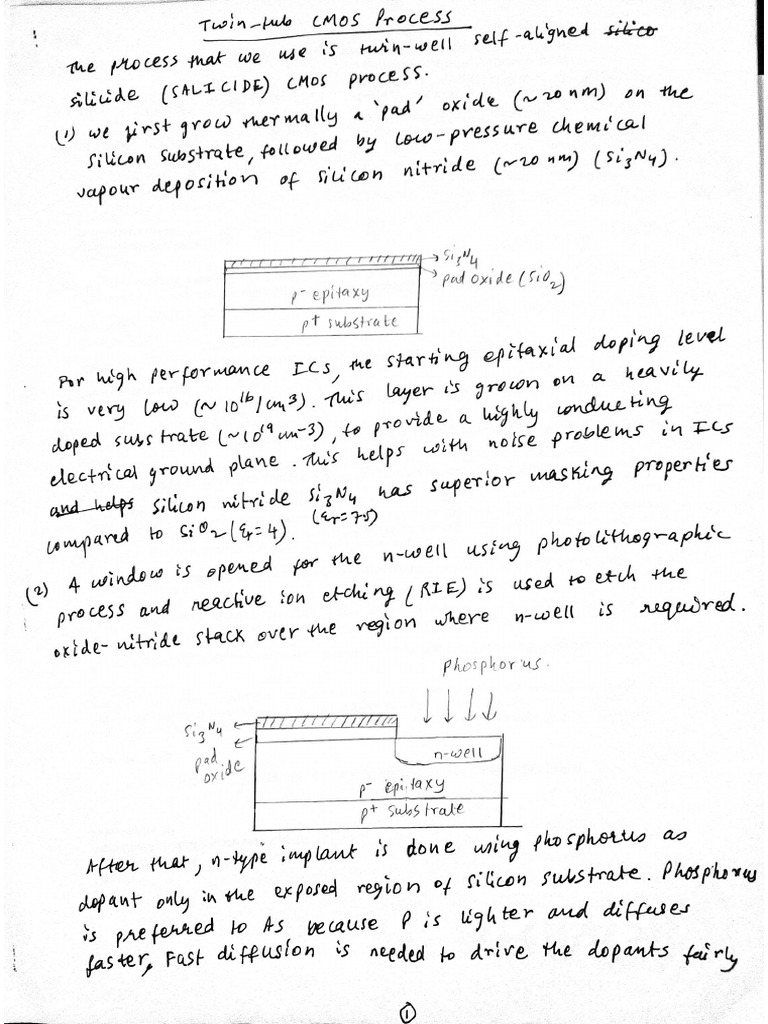 Twin-tub CMOS Process
The process that we use is twin-well self-aligned silico
silicide (SALICIDE) CMOS process.
(1) we first grow thermally a 'pad' oxide (~20nm) on the
silicon substrate, followed by low-pressure chemical
vapour deposition of silicon nitride (~20 nm) (Si3N4).
Si3N4
pad oxide (SiO2)
p- epitaxy
p+ substrate
For high performance ICs, the starting epitaxial doping level
is very low (~10^16/cm3). This layer is grown on a heavily
doped substrate (~10^19 cm-3), to provide a highly conducting
electrical ground plane. This helps with noise problems in ICs
and helps silicon nitride Si3N4 has superior masking properties
compared to SiO2 (Er=4). (Er=75)
(2) A window is opened for the n-well using photolithographic
process and reactive ion etching (RIE) is used to etch the
oxide-nitride stack over the region where n-well is required.
Phosphorus.
Si3N4
pad
oxide
n-well
p- epitaxy
p+ substrate
After that, n-type implant is done using phosphorus as
dopant only in the exposed region of silicon substrate. Phosphorus
is preferred to As because P is lighter and diffuses
faster. Fast diffusion is needed to drive the dopants fairly
1